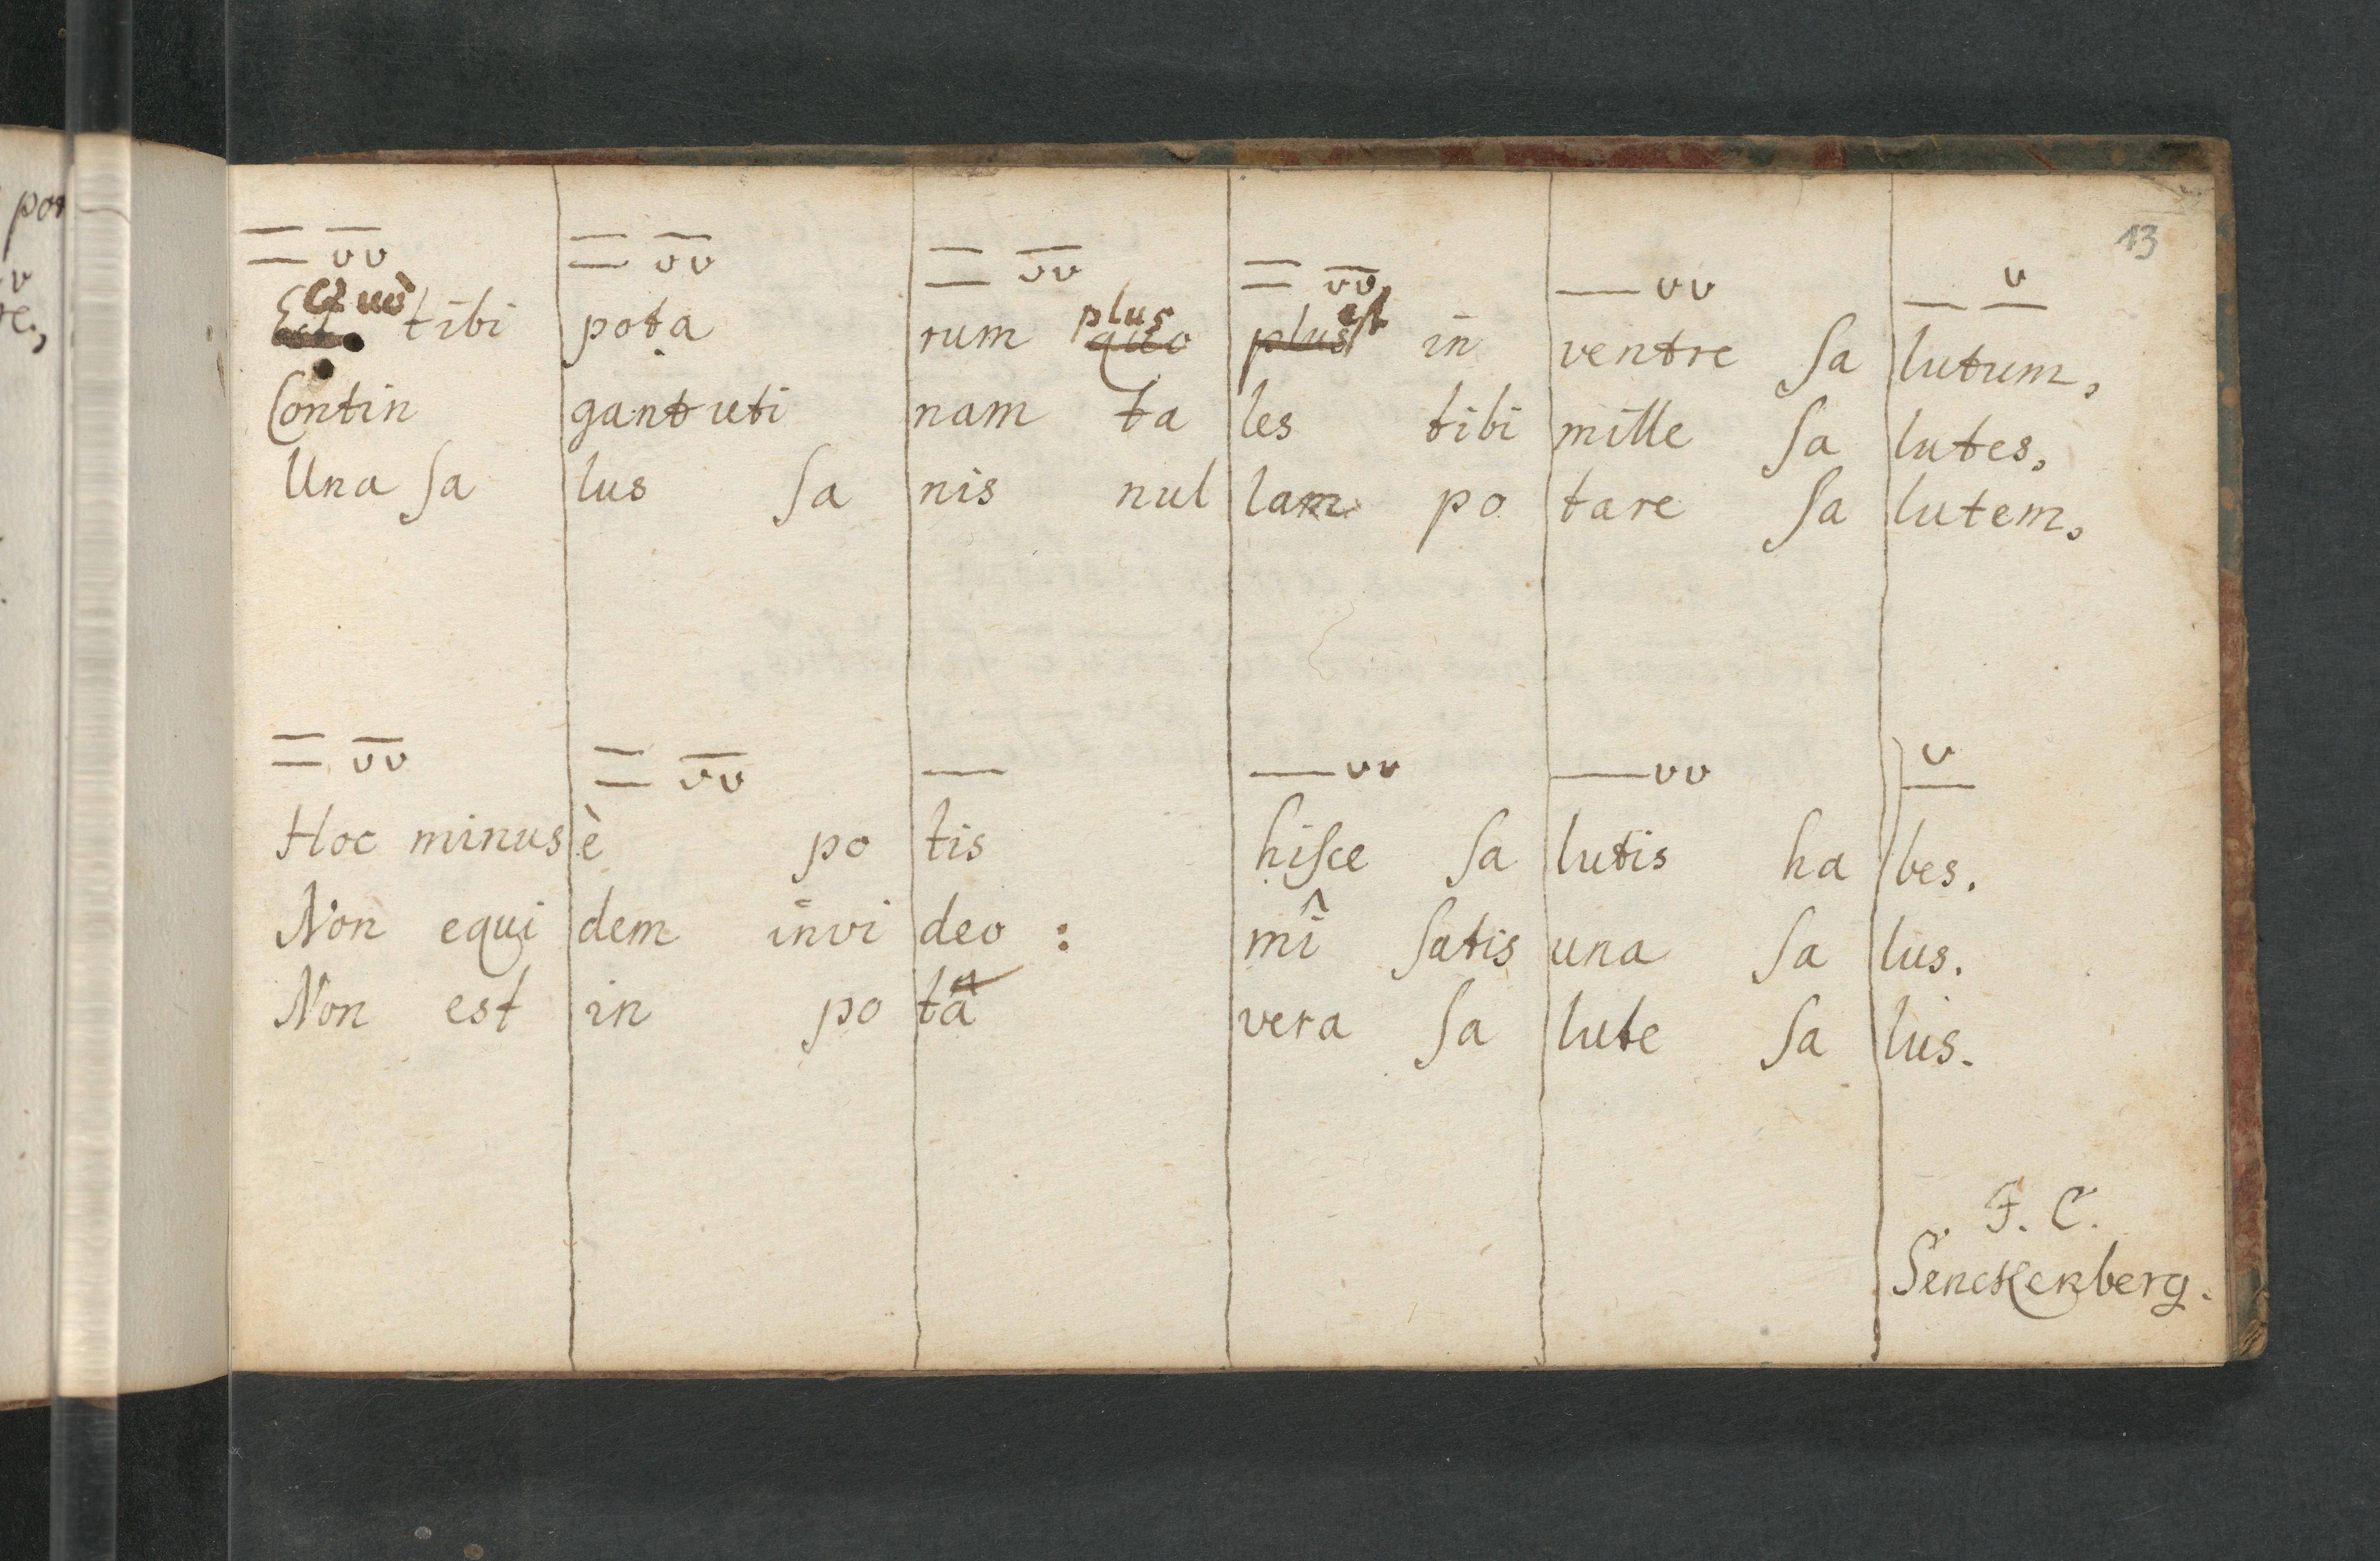 13
Quò tibi pota rum plus est in ventre sa lutum,
Contin gant uti nam ta les tibi mille sa lutes,
Una sa lus sa nis nul lam po tare sa lutem,
Hoc minus è po tis hisce sa lutis ha bes.
Non equi dem invi deo : mî satis una sa lus.
Non est in po tâ vera sa lute sa lus.
F. C.
Senckenberg.